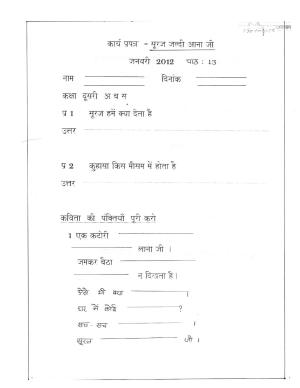 कार्य प्रपत्र - सूरज जल्दी आना जी
जनवरी 2012 पाठ : 13
नाम दिनांक
कक्षा दूसरी अ ब स
प्र 1 सूरज हमें क्या देता है
उत्तर
प्र 2 कुहासा किस मौसम में होता है
उत्तर
कविता की पंक्तियाँ पूरी करो
1 एक कटोरी
लाना जी ।
जमकर बैठा
न दिखता है।
ऐसे भी क्या ।
घर में कोई ?
सच-सच ।
सूरज जी ।